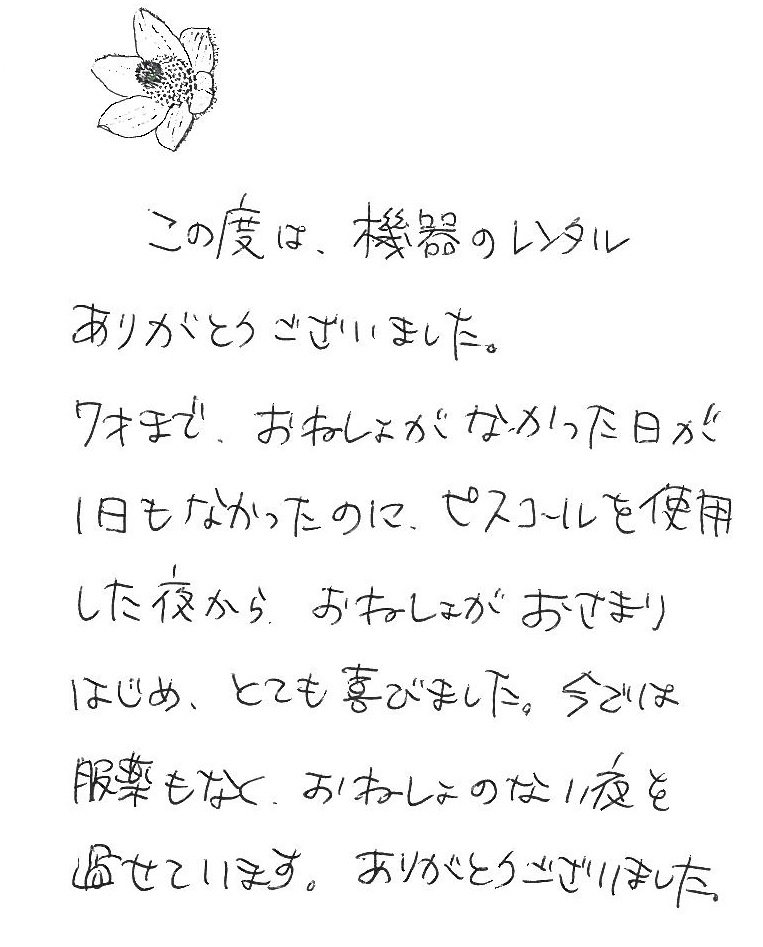 この度は、機器のレンタル
ありがとうございました。
7才まで、おねしょがなかった日が
1日もなかったのに、ピスコールを使用
した夜から、おねしょがおさまり
はじめ、とても喜びました。今では
服薬もなく、おねしょのない夜を
過せています。ありがとうございました。